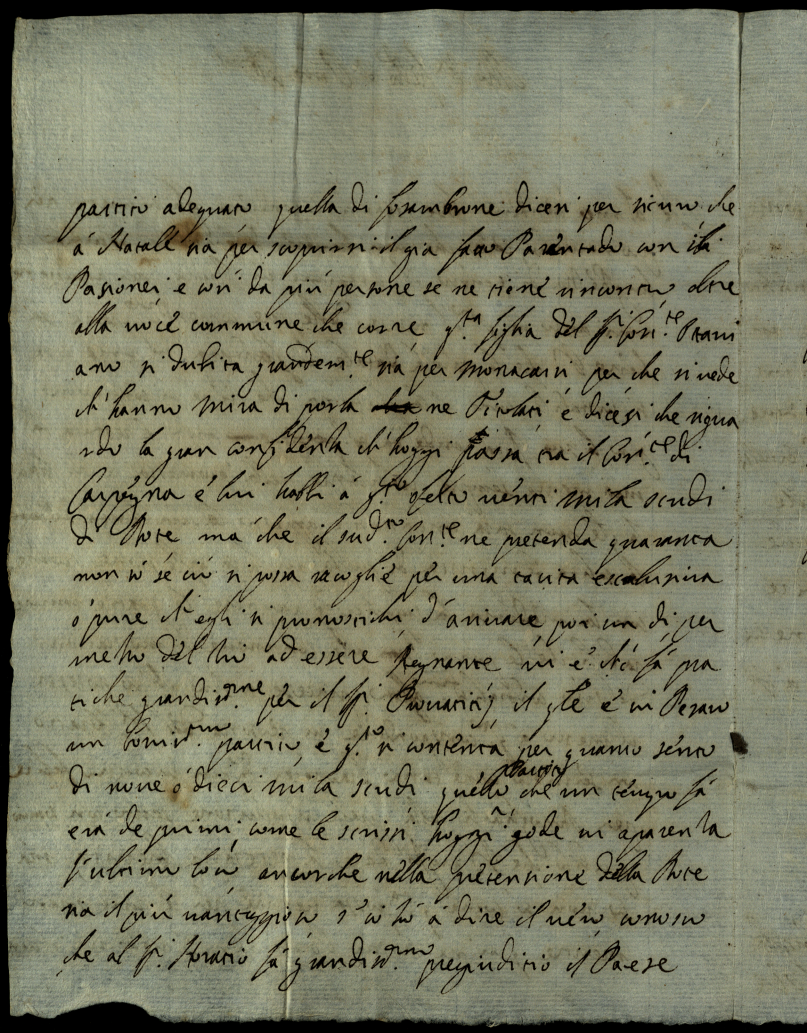 partito adequato quella di fosambrone dicesi per sicuro che
à Natale sia per scoprirsi il già fatto Parentado con i
Pasionei e così da più persone se ne tiene rincontro oltre
alla uoce commune che corre q.ta figlia del S.r Con.te Ottaui
ano si dubita grandem.te sia per monacarsi per che si uede
ch'hanno mira di porla ne e dicesi che rigua
rdo la gran confidenza ch'hoggi passa tra il Con.te di
Carpegna e lui habbi à q.to uenti mila scudi
di Dote ma che il sud.to Con.te ne pretenda quaranta
non sò se ciò si possa racoglie per una tacita esclusiua
ò pure ch'egli si pronostichi d'ariuare poi un di per
mezzo del zio ad essere Regnante ui è chi fà pra
tiche grandiss.me per il S.r il q.le è in Pesaro
un bonis.mo partito e q.to si contenta per quanto sento
di noue ò dieci mila scudi quello partito che un tempo fà
era de primi come le scrissi hoggi gode in aparenza
l'ultimo loco ancorche nella pretensione della Dote
sia il più uantaggioso s'io hò à dire il uero conosco
che al S.r Horatio fà grandiss.mo pregiuditio il Paese